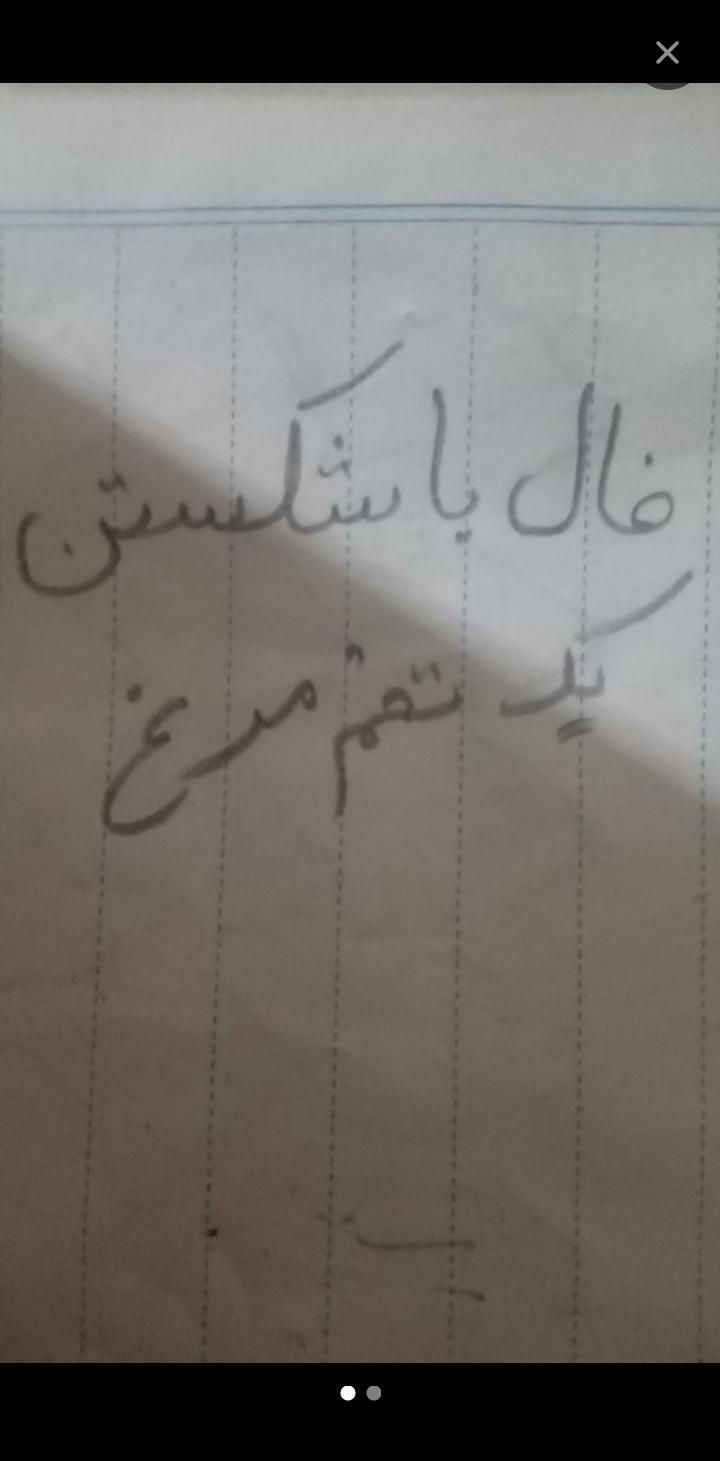 فال با شکستن
یک تخم مرغ